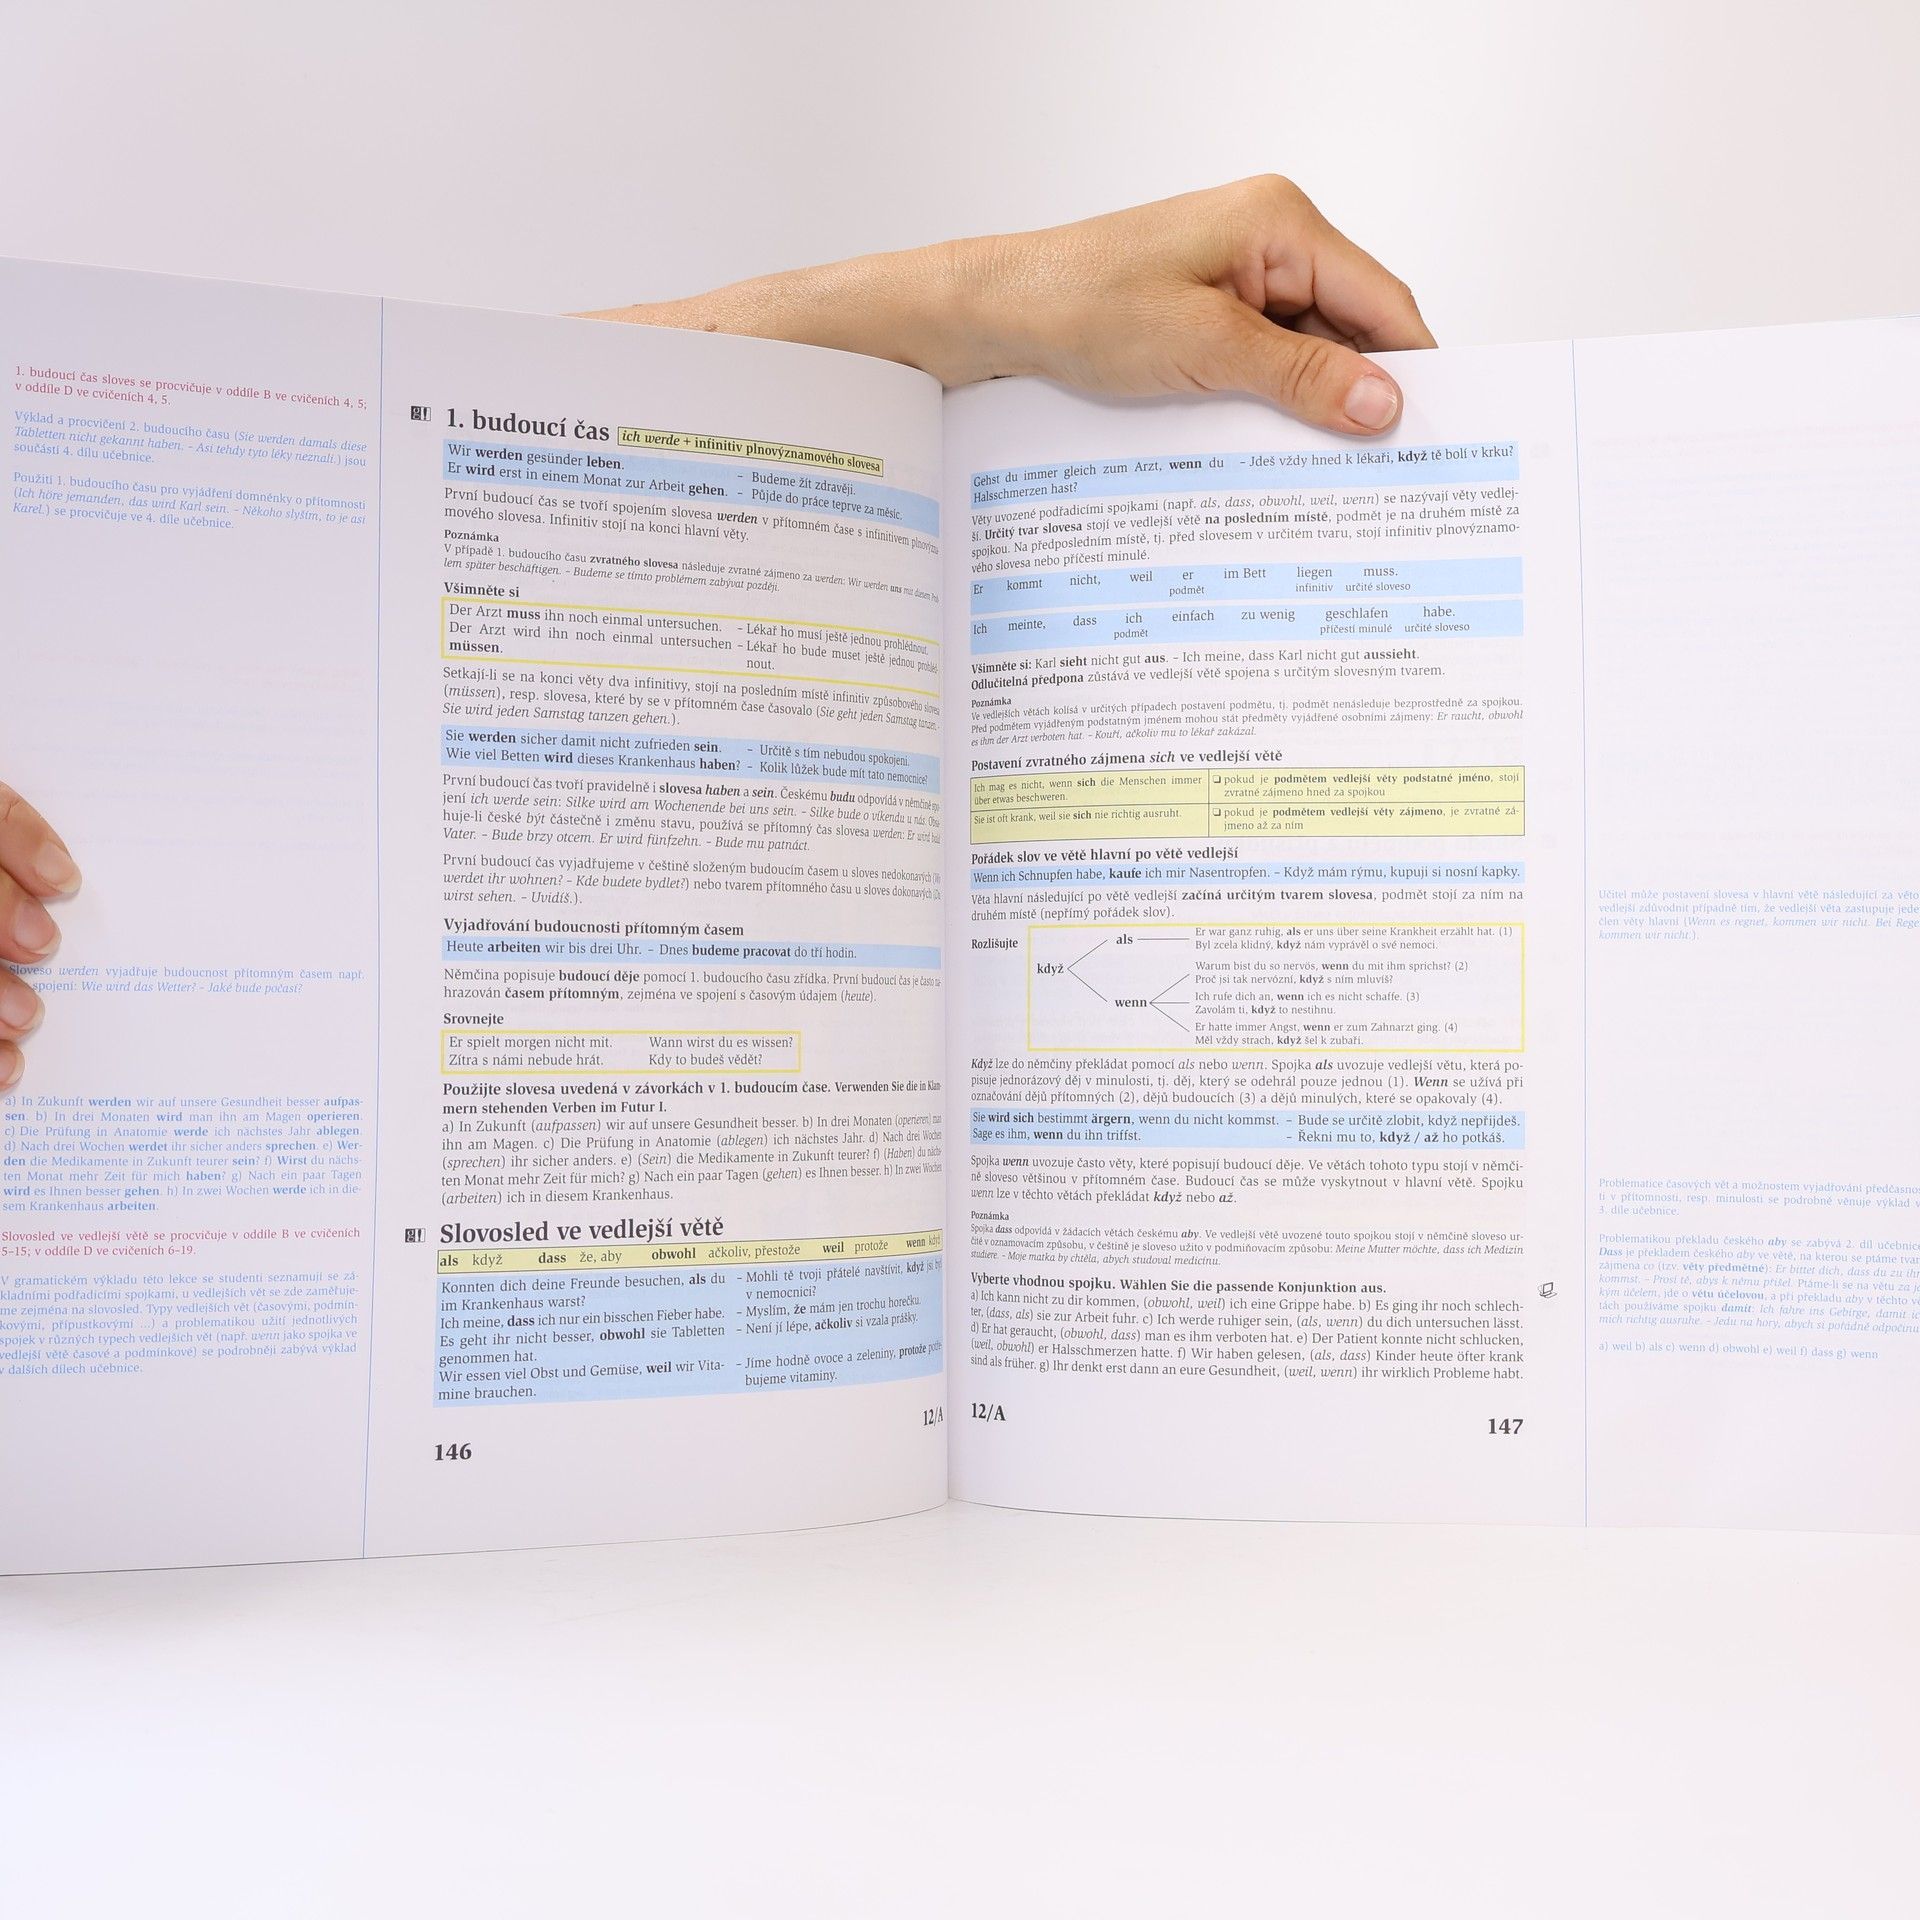 1. budoucí čas sloves se procvičuje v oddíle B ve cvičeních 4, 5;
v oddíle D ve cvičeních 4, 5.
Výklad a procvičení 2. budoucího času (Sie werden damals diese
Tabletten nicht gekannt haben. – Asi tehdy tyto léky neznali.) jsou
součástí 4. dílu učebnice.
Použití 1. budoucího času pro vyjádření domněnky o přítomnosti
(Ich höre jemanden, das wird Karl sein. – Někoho slyším, to je asi
Karel.) se procvičuje ve 4. díle učebnice.
Sloveso werden vyjadřuje budoucnost přítomným časem např.
spojení: Wie wird das Wetter? – Jaké bude počasí?
a) In Zukunft werden wir auf unsere Gesundheit besser aufpas-
sen. b) In drei Monaten wird man ihn am Magen operieren.
c) Die Prüfung in Anatomie werde ich nächstes Jahr ablegen.
d) Nach drei Wochen werdet ihr sicher anders sprechen. e) Wer-
den die Medikamente in Zukunft teurer sein? f) Wirst du nächs-
ten Monat mehr Zeit für mich haben? g) Nach ein paar Tagen
wird es Ihnen besser gehen. h) In zwei Wochen werde ich in die-
sem Krankenhaus arbeiten.
Slovosled ve vedlejší větě se procvičuje v oddíle B ve cvičeních
5–15; v oddíle D ve cvičeních 6–19.
V gramatickém výkladu této lekce se studenti seznamují se zá-
kladními podřadicími spojkami, u vedlejších vět se zde zaměřuje-
me zejména na slovosled. Typy vedlejších vět (časovými, podmín-
kovými, přípustkovými ...) a problematikou užití jednotlivých
spojek v různých typech vedlejších vět (např. wenn jako spojka ve
vedlejší větě časové a podmínkové) se podrobněji zabývá výklad
v dalších dílech učebnice.
g! 1. budoucí čas ich werde + infinitiv plnovýznamového slovesa
Wir werden gesünder leben. – Budeme žít zdravěji.
Er wird erst in einem Monat zur Arbeit gehen. – Půjde do práce teprve za měsíc.
První budoucí čas se tvoří spojením slovesa werden v přítomném čase s infinitivem plnovýzna-
mového slovesa. Infinitiv stojí na konci hlavní věty.
Poznámka
V případě 1. budoucího času zvratného slovesa následuje zvratné zájmeno za werden: Wir werden uns mit diesem Prob-
lem später beschäftigen. – Budeme se tímto problémem zabývat později.
Všimněte si
Der Arzt muss ihn noch einmal untersuchen. – Lékař ho musí ještě jednou prohlédnout.
Der Arzt wird ihn noch einmal untersuchen – Lékař ho bude muset ještě jednou prohléd-
müssen. nout.
Setkají-li se na konci věty dva infinitivy, stojí na posledním místě infinitiv způsobového slovesa
(müssen), resp. slovesa, které by se v přítomném čase časovalo (Sie geht jeden Samstag tanzen. –
Sie wird jeden Samstag tanzen gehen.).
Sie werden sicher damit nicht zufrieden sein. – Určitě s tím nebudou spokojeni.
Wie viel Betten wird dieses Krankenhaus haben? – Kolik lůžek bude mít tato nemocnice?
První budoucí čas tvoří pravidelně i slovesa haben a sein. Českému budu odpovídá v němčině spo-
jení ich werde sein: Silke wird am Wochenende bei uns sein. – Silke bude o víkendu u nás. Obsa-
huje-li české být částečně i změnu stavu, používá se přítomný čas slovesa werden: Er wird bald
Vater. – Bude brzy otcem. Er wird fünfzehn. – Bude mu patnáct.
První budoucí čas vyjadřujeme v češtině složeným budoucím časem u sloves nedokonavých (Wo
werdet ihr wohnen? – Kde budete bydlet?) nebo tvarem přítomného času u sloves dokonavých (Du
wirst sehen. – Uvidíš.).
Vyjadřování budoucnosti přítomným časem
Heute arbeiten wir bis drei Uhr. – Dnes budeme pracovat do tří hodin.
Němčina popisuje budoucí děje pomocí 1. budoucího času zřídka. První budoucí čas je často na-
hrazován časem přítomným, zejména ve spojení s časovým údajem (heute).
Srovnejte
Er spielt morgen nicht mit. Wann wirst du es wissen?
Zítra s námi nebude hrát. Kdy to budeš vědět?
Použijte slovesa uvedená v závorkách v 1. budoucím čase. Verwenden Sie die in Klam-
mern stehenden Verben im Futur I.
a) In Zukunft (aufpassen) wir auf unsere Gesundheit besser. b) In drei Monaten (operieren) man
ihn am Magen. c) Die Prüfung in Anatomie (ablegen) ich nächstes Jahr. d) Nach drei Wochen
(sprechen) ihr sicher anders. e) (Sein) die Medikamente in Zukunft teurer? f) (Haben) du nächs-
ten Monat mehr Zeit für mich? g) Nach ein paar Tagen (gehen) es Ihnen besser. h) In zwei Wochen
(arbeiten) ich in diesem Krankenhaus.
g! Slovosled ve vedlejší větě
als když dass že, aby obwohl ačkoliv, přestože weil protože wenn když
Konnten dich deine Freunde besuchen, als du – Mohli tě tvoji přátelé navštívit, když jsi byl
im Krankenhaus warst? v nemocnici?
Ich meine, dass ich nur ein bisschen Fieber habe. – Myslím, že mám jen trochu horečku.
Es geht ihr nicht besser, obwohl sie Tabletten – Není jí lépe, ačkoliv si vzala prášky.
genommen hat.
Wir essen viel Obst und Gemüse, weil wir Vita- – Jíme hodně ovoce a zeleniny, protože potře-
mine brauchen. bujeme vitaminy.
12/A
146
Gehst du immer gleich zum Arzt, wenn du – Jdeš vždy hned k lékaři, když tě bolí v krku?
Halsschmerzen hast?
Věty uvozené podřadicími spojkami (např. als, dass, obwohl, weil, wenn) se nazývají věty vedlej-
ší. Určitý tvar slovesa stojí ve vedlejší větě na posledním místě, podmět je na druhém místě za
spojkou. Na předposledním místě, tj. před slovesem v určitém tvaru, stojí infinitiv plnovýznamo-
vého slovesa nebo příčestí minulé.
Er kommt nicht, weil er im Bett liegen muss.
podmět infinitiv určité sloveso
Ich meinte, dass ich einfach zu wenig geschlafen habe.
podmět příčestí minulé určité sloveso
Všimněte si: Karl sieht nicht gut aus. – Ich meine, dass Karl nicht gut aussieht.
Odlučitelná předpona zůstává ve vedlejší větě spojena s určitým slovesným tvarem.
Poznámka
Ve vedlejších větách kolísá v určitých případech postavení podmětu, tj. podmět nenásleduje bezprostředně za spojkou.
Před podmětem vyjádřeným podstatným jménem mohou stát předměty vyjádřené osobními zájmeny: Er raucht, obwohl
es ihm der Arzt verboten hat. – Kouří, ačkoliv mu to lékař zakázal.
Postavení zvratného zájmena sich ve vedlejší větě
Ich mag es nicht, wenn sich die Menschen immer ❑ pokud je podmětem vedlejší věty podstatné jméno, stojí
über etwas beschweren. zvratné zájmeno hned za spojkou
Sie ist oft krank, weil sie sich nie richtig ausruht. ❑ pokud je podmětem vedlejší věty zájmeno, je zvratné zá-
jmeno až za ním
Pořádek slov ve větě hlavní po větě vedlejší
Wenn ich Schnupfen habe, kaufe ich mir Nasentropfen. – Když mám rýmu, kupuji si nosní kapky.
Věta hlavní následující po větě vedlejší začíná určitým tvarem slovesa, podmět stojí za ním na
druhém místě (nepřímý pořádek slov).
Rozlišujte
když
als
wenn
Er war ganz ruhig, als er uns über seine Krankheit erzählt hat. (1)
Byl zcela klidný, když nám vyprávěl o své nemoci.
Warum bist du so nervös, wenn du mit ihm sprichst? (2)
Proč jsi tak nervózní, když s ním mluvíš?
Ich rufe dich an, wenn ich es nicht schaffe. (3)
Zavolám ti, když to nestihnu.
Er hatte immer Angst, wenn er zum Zahnarzt ging. (4)
Měl vždy strach, když šel k zubaři.
Když lze do němčiny překládat pomocí als nebo wenn. Spojka als uvozuje vedlejší větu, která po-
pisuje jednorázový děj v minulosti, tj. děj, který se odehrál pouze jednou (1). Wenn se užívá při
označování dějů přítomných (2), dějů budoucích (3) a dějů minulých, které se opakovaly (4).
Sie wird sich bestimmt ärgern, wenn du nicht kommst. – Bude se určitě zlobit, když nepřijdeš.
Sage es ihm, wenn du ihn triffst. – Řekni mu to, když / až ho potkáš.
Spojka wenn uvozuje často věty, které popisují budoucí děje. Ve větách tohoto typu stojí v němči-
ně sloveso většinou v přítomném čase. Budoucí čas se může vyskytnout v hlavní větě. Spojku
wenn lze v těchto větách překládat když nebo až.
Poznámka
Spojka dass odpovídá v žádacích větách českému aby. Ve vedlejší větě uvozené touto spojkou stojí v němčině sloveso ur-
čitě v oznamovacím způsobu, v češtině je sloveso užito v podmiňovacím způsobu: Meine Mutter möchte, dass ich Medizin
studiere. – Moje matka by chtěla, abych studoval medicínu.
Vyberte vhodnou spojku. Wählen Sie die passende Konjunktion aus.
a) Ich kann nicht zu dir kommen, (obwohl, weil) ich eine Grippe habe. b) Es ging ihr noch schlech-
ter, (dass, als) sie zur Arbeit fuhr. c) Ich werde ruhiger sein, (als, wenn) du dich untersuchen lässt.
d) Er hat geraucht, (obwohl, dass) man es ihm verboten hat. e) Der Patient konnte nicht schlucken,
(weil, obwohl) er Halsschmerzen hatte. f) Wir haben gelesen, (als, dass) Kinder heute öfter krank
sind als früher. g) Ihr denkt erst dann an eure Gesundheit, (weil, wenn) ihr wirklich Probleme habt.
12/A
147
Učitel může postavení slovesa v hlavní větě následující za větou
vedlejší zdůvodnit případně tím, že vedlejší věta zastupuje jeden
člen věty hlavní (Wenn es regnet, kommen wir nicht. Bei Rege
kommen wir nicht.).
Problematice časových vět a možnostem vyjadřování předčasnos
ti v přítomnosti, resp. minulosti se podrobně věnuje výklad v
3. díle učebnice.
Problematikou překladu českého aby se zabývá 2. díl učebnice
Dass je překladem českého aby ve větě, na kterou se ptáme tvar
zájmena co (tzv. věty předmětné): Er bittet dich, dass du zu ihm
kommst. – Prosí tě, abys k němu přišel. Ptáme-li se na větu za ja
kým účelem, jde o větu účelovou, a při překladu aby v těchto vě
tách používáme spojku damit: Ich fahre ins Gebirge, damit ic
mich richtig ausruhe. – Jedu na hory, abych si pořádně odpočinu
a) weil b) als c) wenn d) obwohl e) weil f) dass g) wenn